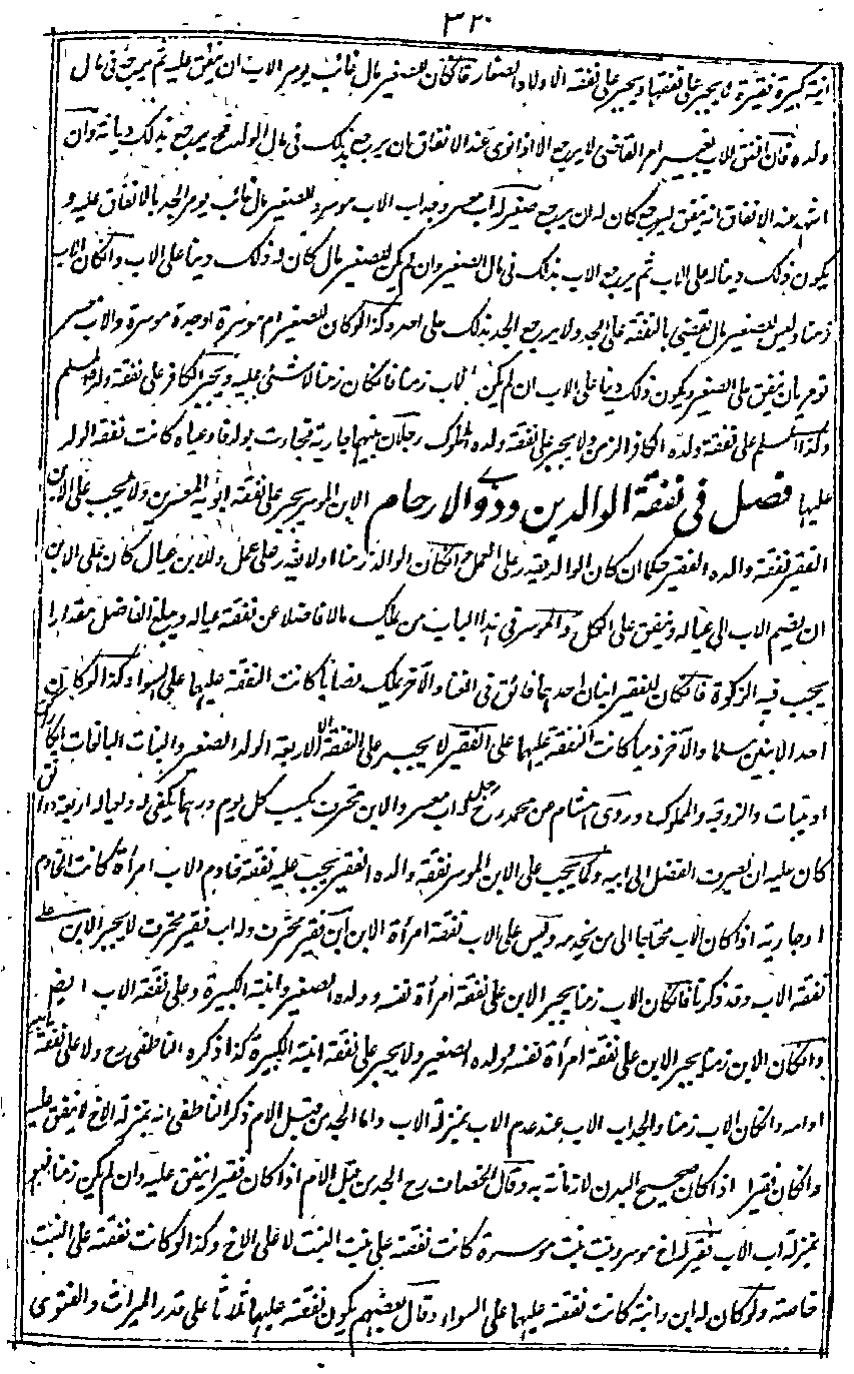 ٣٢٠
ابنه كبيرة فقيرة لا يجبر على نفقتها ويجبر على نفقة الاولاد الصغار فان كان للصغير مال غائب يؤمر الاب ان ينفق عليه ثم يرجع في مال
ولده فان انفق الاب بغير امر القاضي لا يرجع الا اذا نوى عند الانفاق بان يرجع بذلك في مال الولد فح يرجع بذلك ديانة وان
اشهد عند الانفاق انه ينفق ليرجع كان له ان يرجع صغير له اب معسر وجد اب الاب موسر وللصغير مال غائب يؤمر الجد بالانفاق عليه و
يكون ذلك دينا له على الاب ثم يرجع الاب بذلك في مال الصغير وان لم يكن للصغير مال كان ذلك دينا على الاب وان كان الاب
زمنا وليس للصغير مال يقضى بالنفقة على الجد ولا يرجع الجد بذلك على احد وكذا لو كان للصغير ام موسرة او جدة موسرة والاب معسر
تؤمر بان ينفق على الصغير ويكون ذلك دينا على الاب ان لم يكن الاب زمنا فان كان زمنا لا شئ عليه ويجبر الكافر على نفقة ولده المسلم
وكذا المسلم على نفقة ولده الكافر الزمن ولا يجبر على نفقة ولده المملوك رجلان بينهما جارية فجاءت بولد فادعياه كانت نفقة الولد
عليهما فصل في نفقة الوالدين وذوي الارحام الابن الموسر يجبر على نفقة ابويه المعسرين ولا يجب على الابن
الفقير نفقة والده الفقير حكما ان كان الوالد يقدر على العمل وان كان الوالد زمنا او لا يقدر على عمل وللابن عيال كان على الابن
ان يضم الاب الى عياله وينفق على الكل والموسر في هذا الباب من يملك مالا فاضلا عن نفقة عياله ويبلغ الفاضل مقدارا
يجب فيه الزكوة فان كان للفقير ابنان احدهما فائق في الغنا والآخر يملك نصابا كانت النفقة عليهما على السواء وكذا لو كان
احد الابنين مسلما والآخر ذميا كانت النفقة عليهما على الفقير لا يجبر على النفقة الا لاربعة الولد الصغير والبنات البالغات ابكارا كن
او ثيبات والزوجة والمملوك وروى هشام عن محمد رح رجل له اب معسر والابن محترف يكسب كل يوم درهما يكفي له ولعياله اربعة دوانق
كان عليه ان يصرف الفضل الى ابيه وكما يجب على الابن الموسر نفقة والده الفقير يجب عليه نفقة خادم الاب امرأة كانت الخادم
او جارية اذا كان الاب محتاجا الى من يخدمه وليس على الاب نفقة امرأة الابن ابن فقير محترف وله اب فقير محترف لا يجبر الابن على
نفقة الاب وقد ذكرنا فان كان الاب زمنا يجبر الابن على نفقة امرأة نفسه وولده الصغير وابنته الكبيرة وعلى نفقة الاب ايضا
وان كان الابن زمنا يجبر الابن على نفقة امرأة نفسه وولده الصغير ولا يجبر على نفقة ابنته الكبيرة كذا ذكره الناطفي رح ولا على نفقة ابيه
او امه وان كان الاب زمنا والجد اب الاب عند عدم الاب بمنزلة الاب واما الجد من قبل الام ذكر الناطفي انه بمنزلة الاخ لا ينفق عليه
وان كان فقيرا اذا كان صحيح البدن لا زمانة به وقال الخصاف رح الجد من قبل الام اذا كان فقيرا ينفق عليه وان لم يكن زمنا فهو
بمنزلة اب الاب فقير له اخ موسر وبنت بنت موسرة كانت نفقته على بنت البنت لا على الاخ وكذا لو كانت نفقته على البنت
خاصة ولو كان له ابن وابنة كانت نفقته عليهما على السواء وقال بعضهم يكون نفقته عليهما ثلاثا على قدر الميراث والفتوى